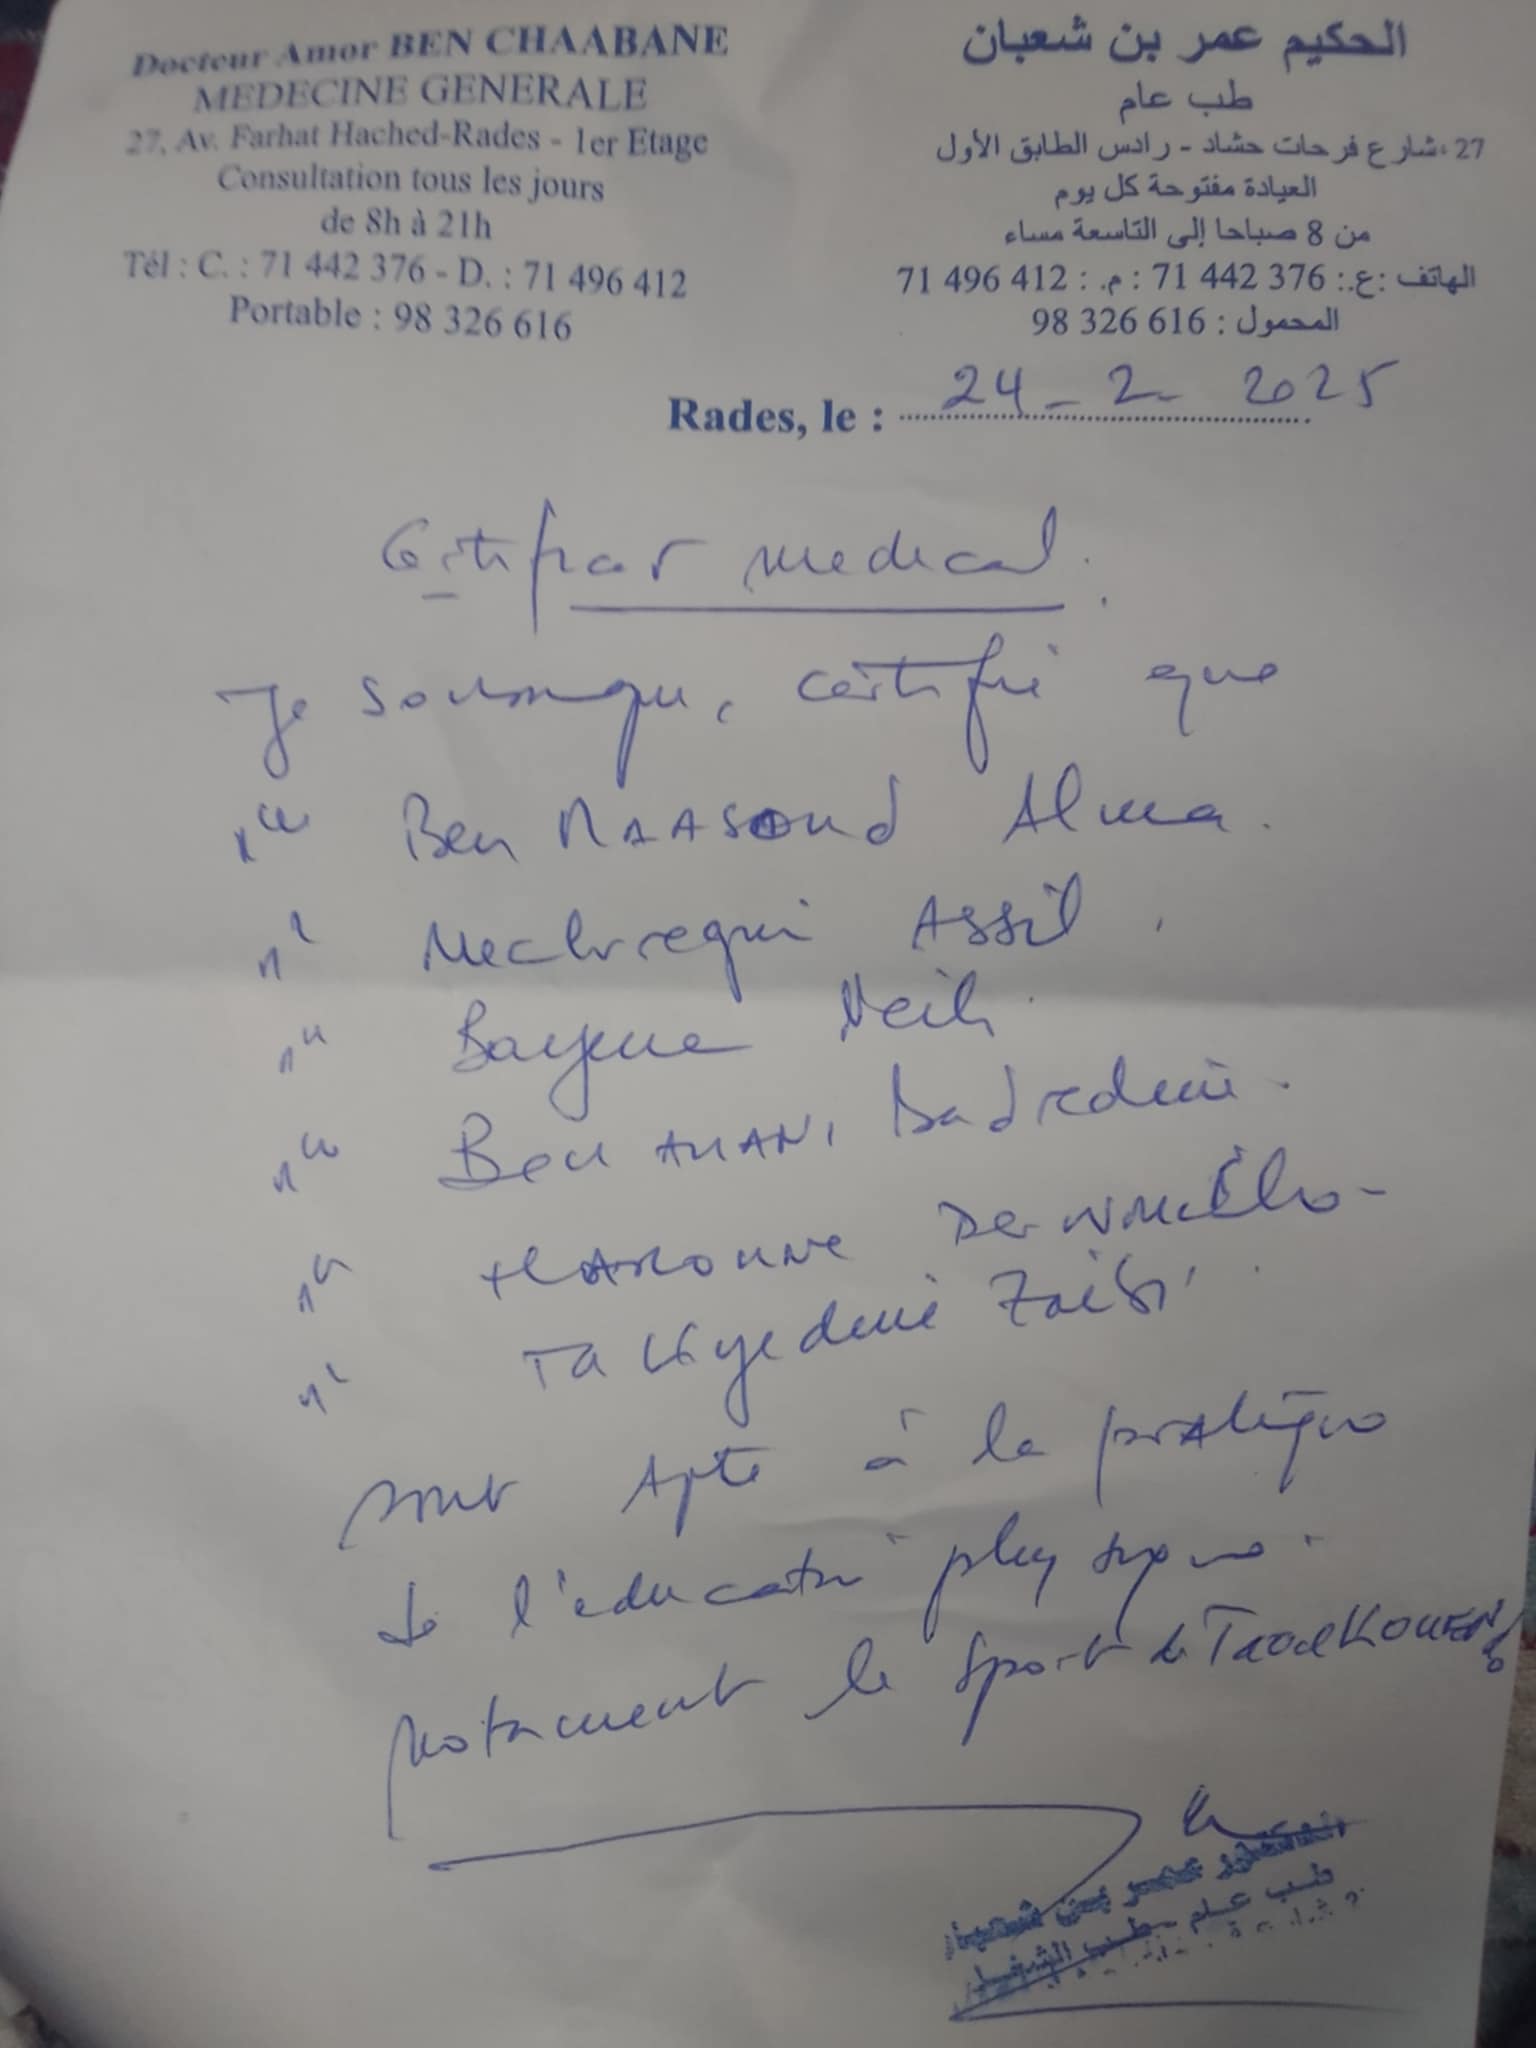 Docteur Amor BEN CHAABANE
MEDECINE GENERALE
27, Av. Farhat Hached-Rades - 1er Etage
Consultation tous les jours
de 8h à 21h
Tél : C. : 71 442 376 - D. : 71 496 412
Portable : 98 326 616
الحكيم عمر بن شعبان
طب عام
27، شارع فرحات حشاد - رادس الطابق الأول
العيادة مفتوحة كل يوم
من 8 صباحا إلى التاسعة مساء
الهاتف :ع.: 71 442 376 : م. : 71 496 412
المحمول : 98 326 616
Rades, le : 24 - 2 - 2025
Certificat medical
Je soussigné, certifie que
Ben MAASOUD Alma
Mechregui Assil
Neil
Ben Badredine
HAROUNE
Takiyedine Zaibi
sont Apte à la pratique
de l'éducation physique
notamment le sport de
الدكتور عمر بن شعبان
طب عام - طب الشغل